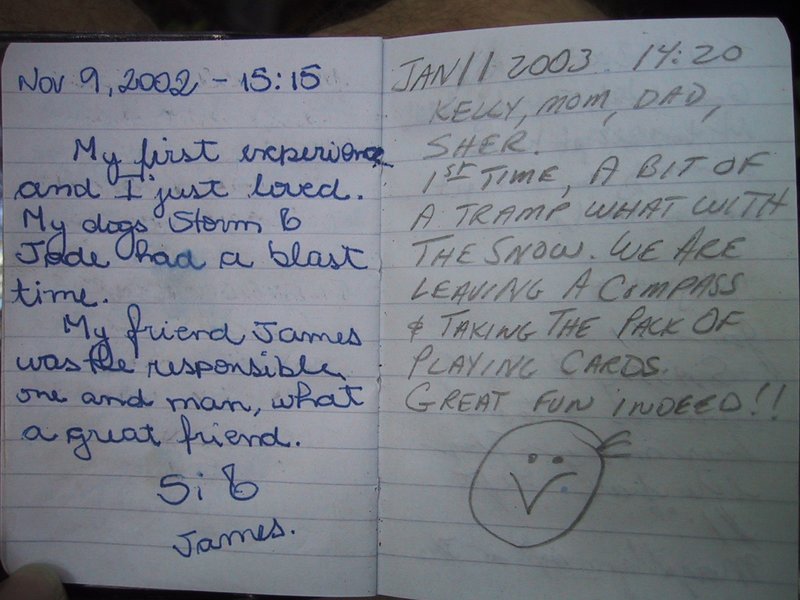 Nov 9, 2002 - 15:15
My first experience
and I just loved.
My dogs Storm &
Jade had a blast
time.
My friend James
was the responsible
one and man, what
a great friend.
Si &
James.
JAN 11 2003 14:20
KELLY, MOM, DAD,
SHER.
1ST TIME, A BIT OF
A TRAMP WHAT WITH
THE SNOW. WE ARE
LEAVING A COMPASS
& TAKING THE PACK OF
PLAYING CARDS.
GREAT FUN INDEED!!